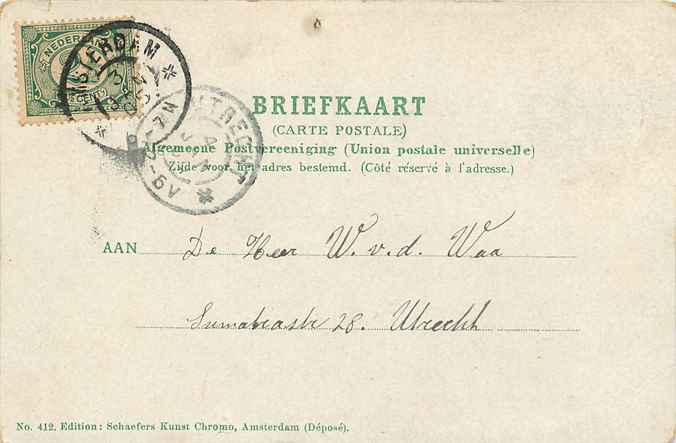 NEDERLAND
CENT
AMSTERDAM
UTRECHT
BRIEFKAART
(CARTE POSTALE)
Algemeene Postvereeniging (Union postale universelle)
Zijde voor het adres bestemd. (Côté réservé à l'adresse.)
AAN De Heer W. v. d. Waa
Sumatrastr 28. Utrecht
No. 412. Edition: Schaefers Kunst Chromo, Amsterdam (Déposé).